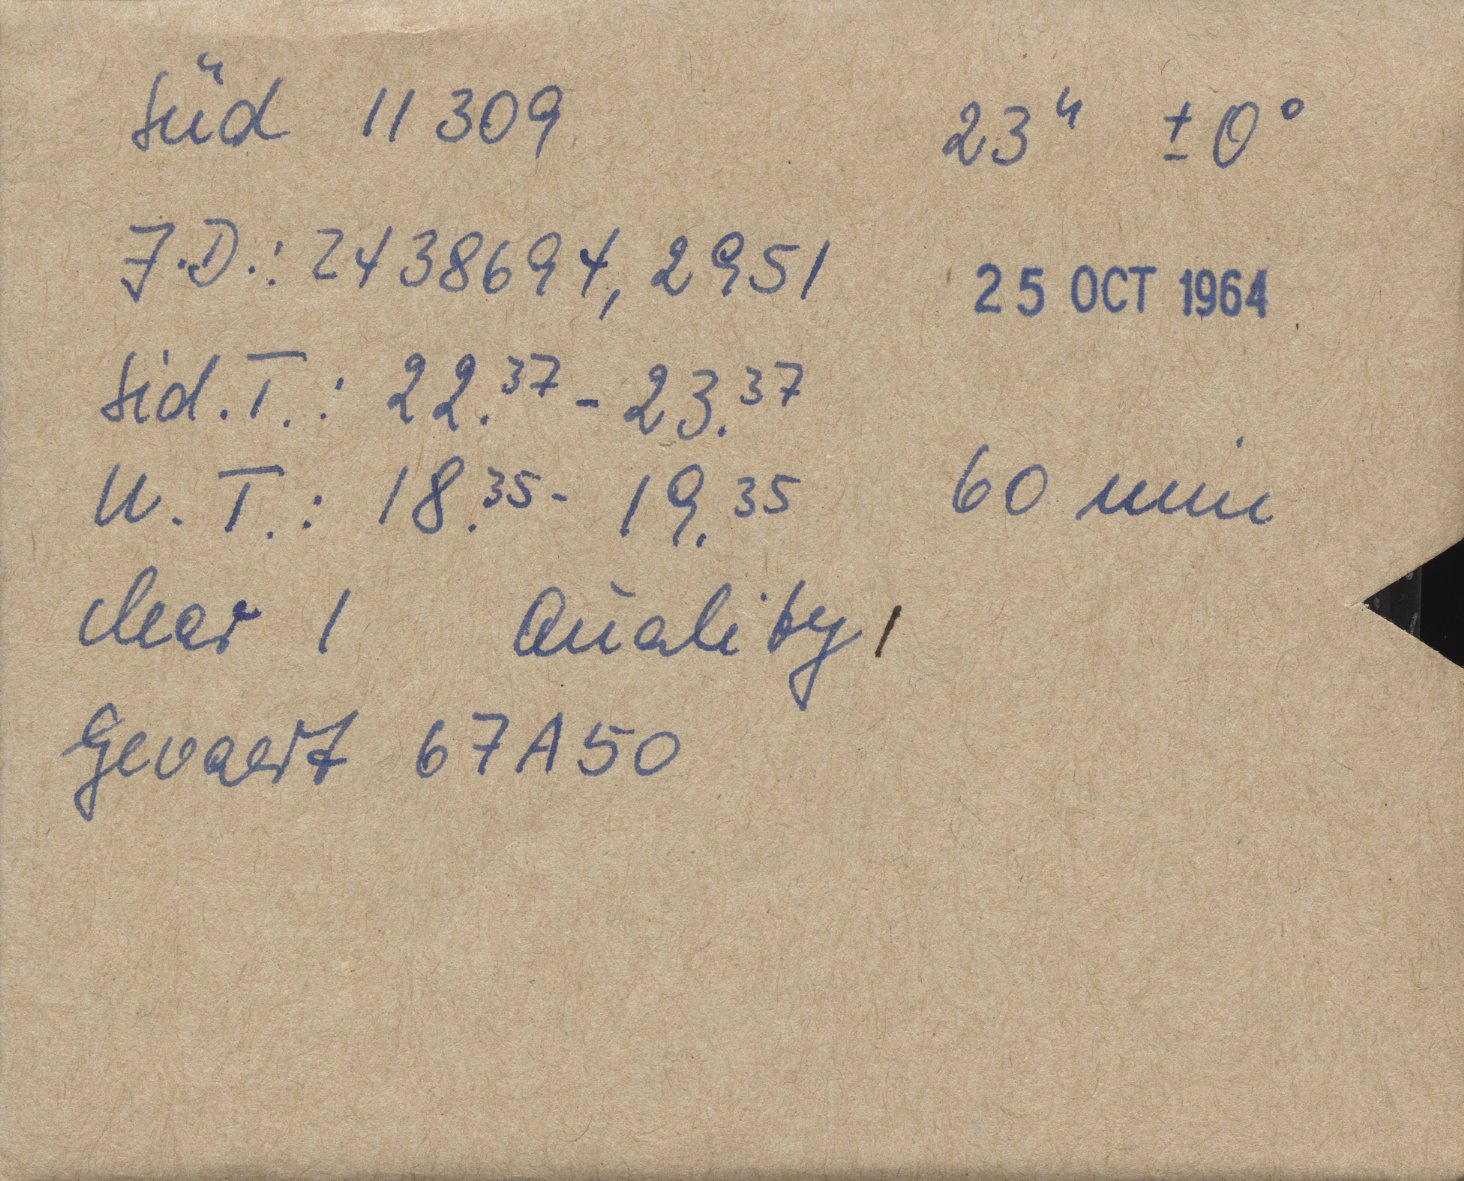 Süd 11309 23ʰ ±0°
J.D.: 2438694,2951 25 OCT 1964
Sid.T.: 22.³⁷ - 23.³⁷
U.T.: 18.³⁵ - 19.³⁵ 60 min
clear 1 Quality 1
Gevaert 67A50